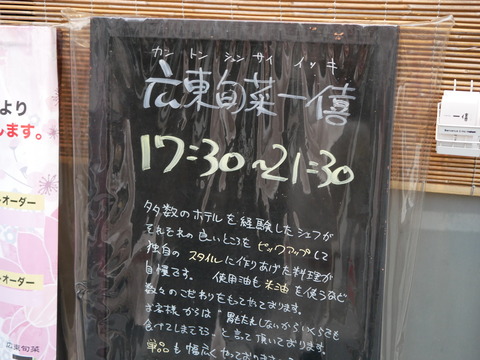 カントンシュンサイ イッキ
広東旬菜一僖
17:30~21:30
多数のホテルを経験したシェフが
それぞれの良いところをピックアップして
独自のスタイルに作りあげた料理が
自慢です。 使用油も米油を使うなど
数々のこだわりをもってやっております。
お客様からは"胃もたれしないからいくらでも
食けてしまてろう"と言って頂いております。
単品も幅広くやっております
より
します。
オーダー
オーダー
広東旬菜
一僖